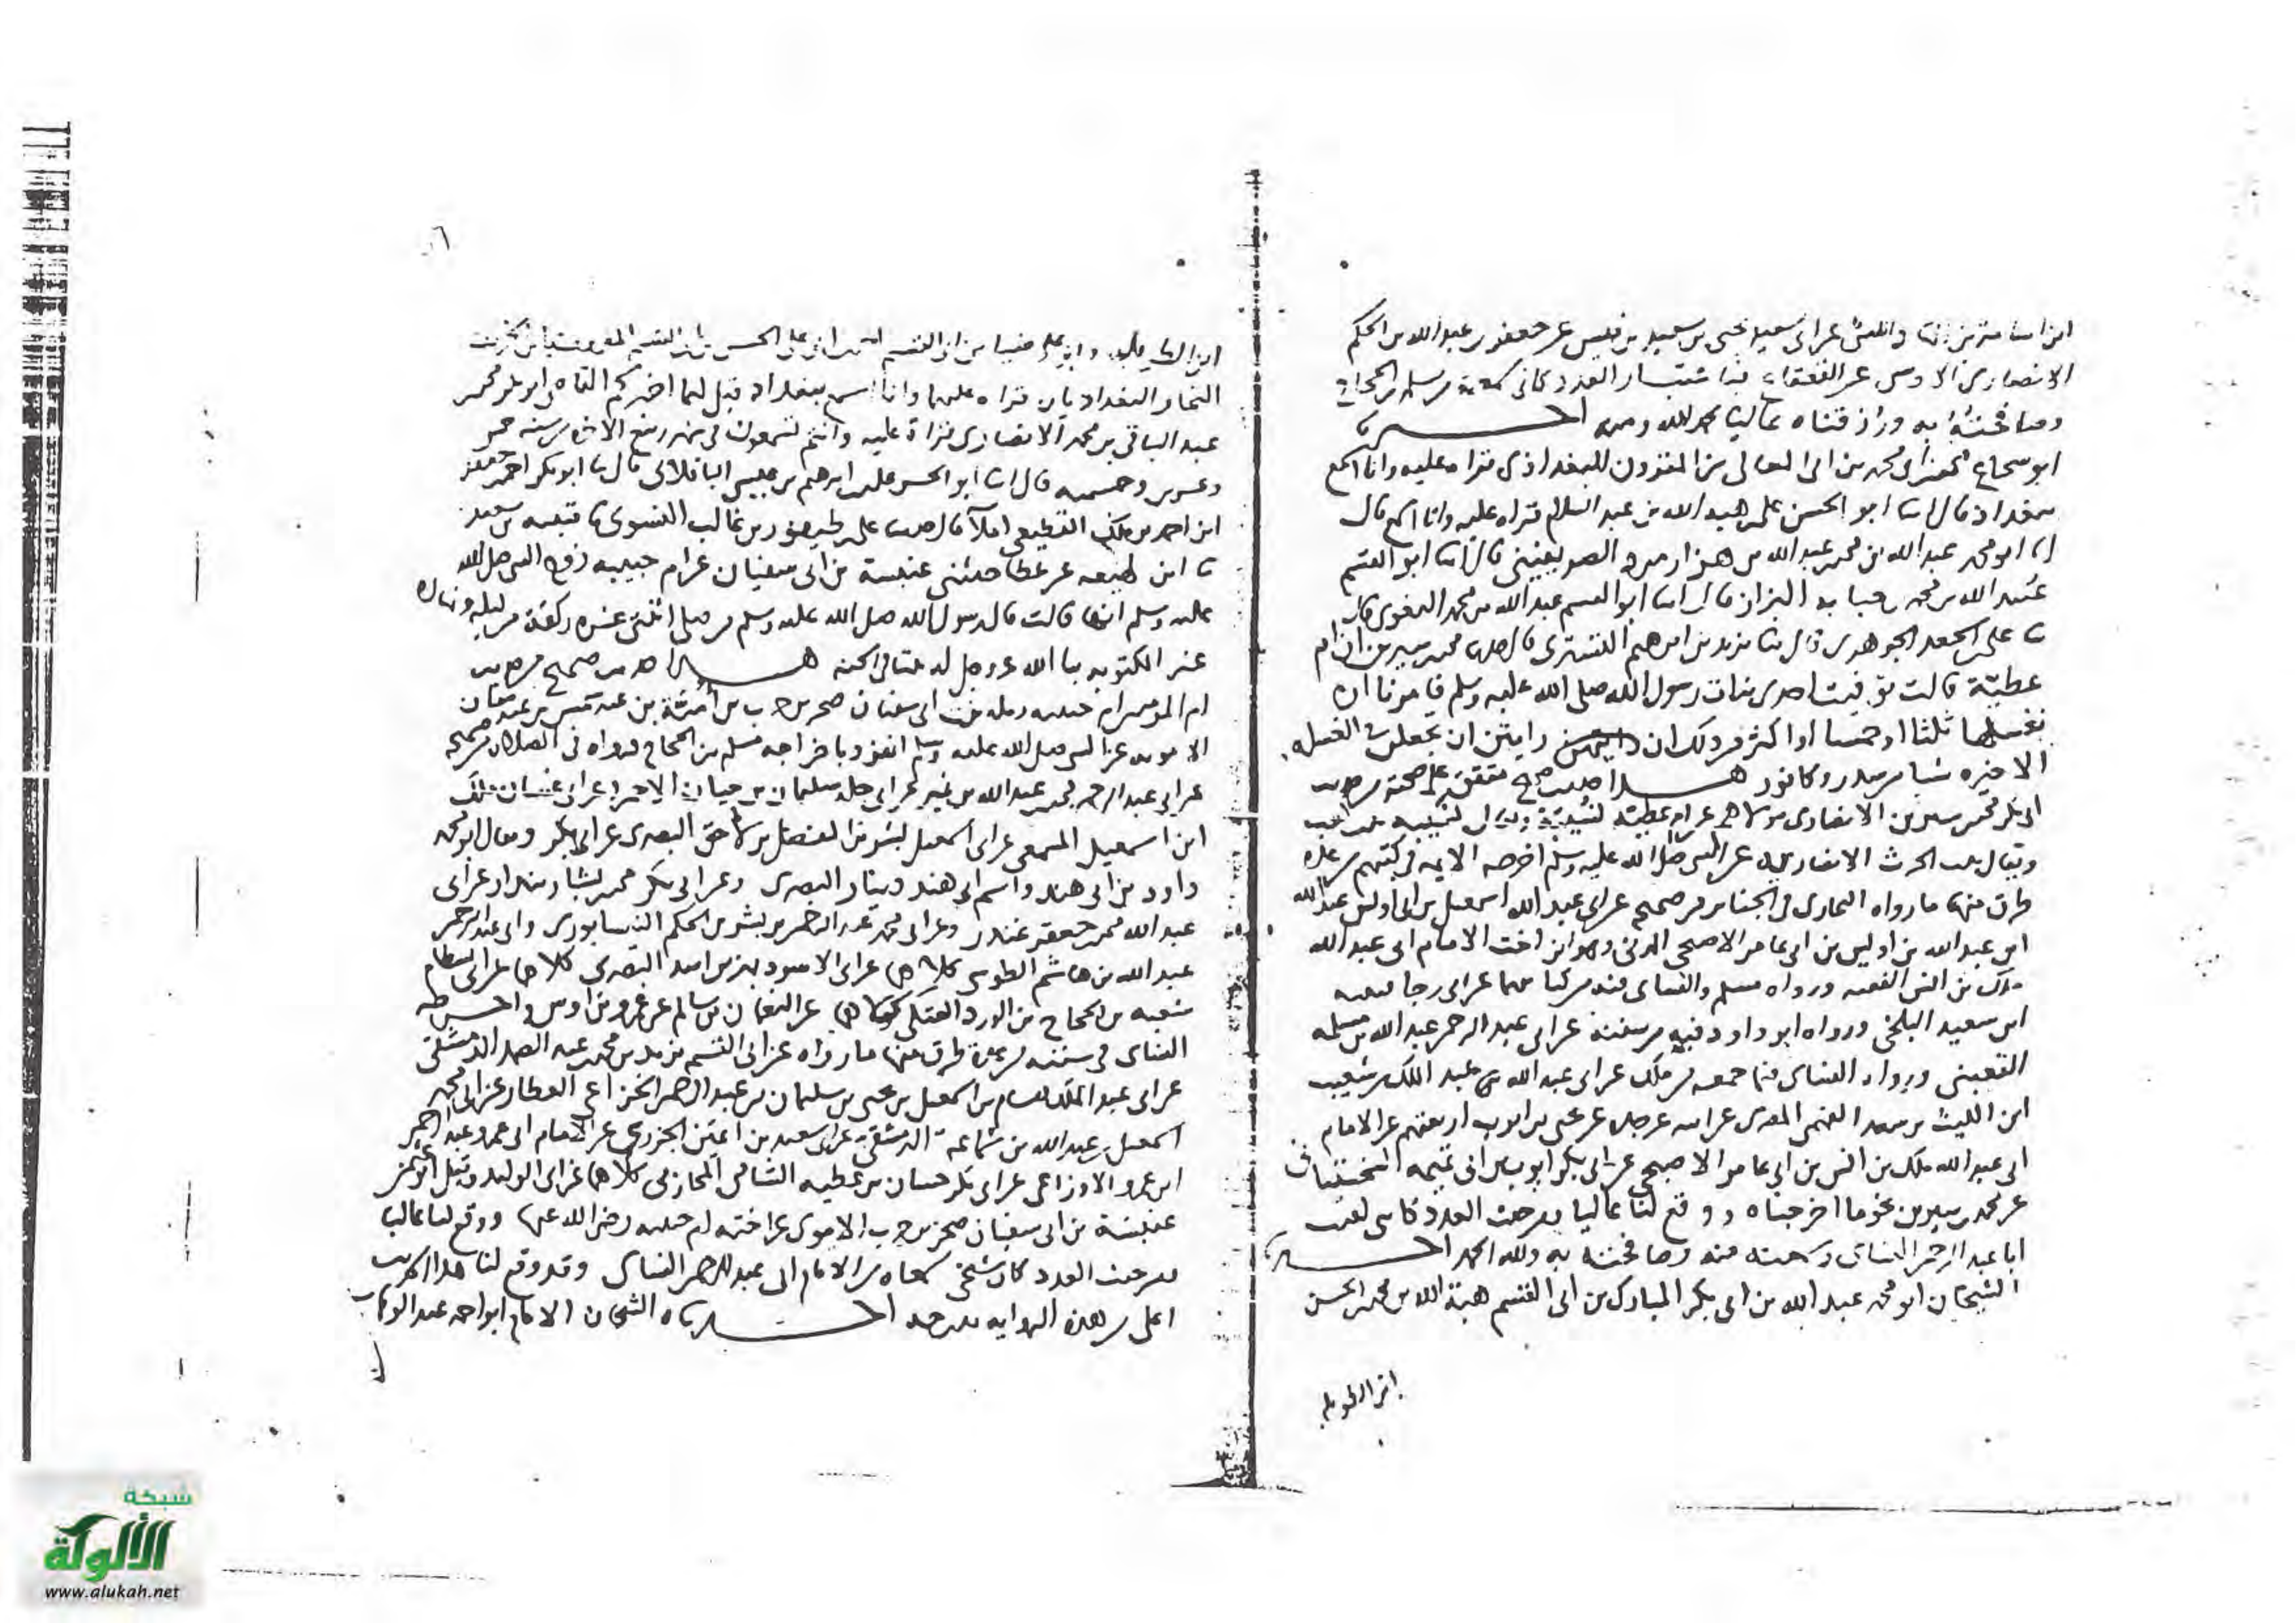 ابن اسامة بن الهاد والليث عن ابي سعيد يحيى بن سعيد بن قيس عن جعفر بن عبد الله بن الحكم
الانصاري الاوسي عن القعقاع فباعتبار العدد كاني سمعته من مسلم بن الحجاج
وصافحته به ورزقناه عاليا بحمد الله ومنه اخبرنا
ابو شجاع محمد بن ابي المعالي بن المقرون البغدادي قراه عليه وانا اسمع
ببغداد قال انا ابو الحسن علي بن هبة الله بن عبد السلام قراه عليه وانا اسمع قال
انا ابو محمد عبد الله بن محمد بن عبد الله بن هزارمرد الصريفيني قال انا ابو القسم
عبيد الله بن محمد بن حبابه البزاز قال انا ابو القسم عبد الله بن محمد البغوي قال
ثنا علي بن الجعد الجوهري قال ثنا يزيد بن ابرهيم التستري قال حدثنا محمد بن سيرين ان ام
عطية قالت توفيت احدى بنات رسول الله صلى الله عليه وسلم فامرنا ان
نغسلها ثلثا او خمسا او اكثر من ذلك ان رايتن ان تجعلن في الغسله
الاخيره شيا من سدر وكافور هذا حديث صحيح متفق على صحته من حديث
ابي بكر محمد بن سيرين الانصاري مولاهم عن ام عطية نسيبة ويقال نسيبه بنت كعب
ويقال بنت الحرث الانصاريه عن النبي صلى الله عليه وسلم اخرجه الايمه في كتبهم من عدة
طرق منها ما رواه البخاري في الجنايز من صحيحه عن ابي عبد الله اسمعيل بن ابي اويس عبد الله
ابن عبد الله بن اويس بن ابي عامر الاصبحي المدني وهو ابن اخت الامام ابي عبد الله
ملك بن انس الفقيه ورواه مسلم والنساي عن ابي رجا قتيبه
ابن سعيد البلخي ورواه ابو داود فيه من سننه عن ابي عبد الرحمن عبد الله بن مسلمه
القعنبي ورواه النساي فيما جمعه من حديث ملك عن ابي عبد الله عبد الملك بن شعيب
ابن الليث بن سعد الفهمي المصري عن ابيه عن جده عن يحيى بن ايوب اربعتهم عن الامام
ابي عبد الله ملك بن انس بن ابي عامر الاصبحي عن ابي بكر ايوب بن ابي تميمه السختياني
عن محمد بن سيرين نحو ما اخرجناه ووقع لنا عاليا من حيث العدد كاني لقيت
ابا عبد الرحمن النساي وسمعته منه وصافحته به ولله الحمد اخبرنا
الشيخان ابو محمد عبد الله بن ابي بكر المبارك بن ابي القسم هبة الله بن محمد بن الحسن
ابن الطويله
٦
ابن الطويله وابو علي ضيا بن ابي القسم احمد بن ابي علي الحسن بن ابي القسم المعروف بابن الخريف
النجار البغداديان قراه عليهما وانا اسمع ببغداد قيل لهما اخبركم القاضي ابو بكر محمد
عبد الباقي بن محمد الانصاري قراة عليه وانتم تسمعون في شهر ربيع الاخر من سنه خمس
وعشرين وخمسميه قال انا ابو الحسن علي بن ابرهيم بن عيسى الباقلاني قال ثنا ابو بكر احمد بن جعفر
ابن احمد بن ملك القطيعي املآ قال حدثنا علي بن طيفور بن غالب النسوي ثنا قتيبه بن سعيد
ثنا ابن لهيعه عن عطا حدثني عنبسة بن ابي سفيان عن ام حبيبه زوج النبي صلى الله
عليه وسلم انها قالت قال رسول الله صلى الله عليه وسلم من صلى اثنتي عشره ركعة من ليله ونهاره
غير المكتوبه بنا الله عز وجل له بيتا في الجنه هذا حديث صحيح من حديث
ام المومنين ام حبيبه رمله بنت ابي سفيان صخر بن حرب بن امية بن عبد شمس بن عبد مناف
الامويه عن النبي صلى الله عليه وسلم انفرد باخراجه مسلم بن الحجاج فرواه في الصلاه من صحيحه
عن ابي عبد الرحمن محمد بن عبد الله بن نمير عن ابي خلد سليمان بن حيان الاحمر وعن ابي غسان ملك
ابن اسمعيل المسمعي عن ابي اسمعيل بشر بن المفضل بن لاحق البصري عن ابي بكر ويقال ابو محمد
داود بن ابي هند واسم ابي هند دينار البصري وعن ابي بكر محمد بن بشار بندار عن ابي
عبد الله محمد بن جعفر غندر وعن ابي محمد عبد الرحمن بن بشر بن الحكم النيسابوري وابي عبد الرحمن
عبد الله بن هاشم الطوسي كلاهما عن ابي الاسود بهز بن اسد البصري كلاهما عن ابي بسطام
شعبه بن الحجاج بن الورد العتكي كلاهما عن النعمان بن سالم عن عمرو بن اوس واخرجه
النساي في سننه من عدة طرق منها ما رواه عن ابي القسم يزيد بن محمد بن عبد الصمد الدمشقي
عن ابي عبد الملك هشام بن اسمعيل بن يحيى بن سليمان بن عبد الرحمن الخزاعي العطار عن ابي محمد
اسمعيل بن عبد الله بن سماعة الدمشقي عن ابي سعيد بن اعين الجزري عن الامام ابي عمرو عبد الرحمن
ابن عمرو الاوزاعي عن ابي بكر حسان بن عطيه الشامي المحاربي كلاهما عن ابي الوليد وقيل ابو عثمن
عنبسة بن ابي سفيان صخر بن حرب الاموي عن اخته ام حبيبه رضي الله عنها ووقع لنا عاليا
من حيث العدد كان شيخي سمعاه من الامام ابي عبد الرحمن النساي وقد وقع لنا هذا الحديث
اعلى من هذه الروايه بدرجه اخبرناه الشيخان الامام ابو احمد عبد الوهاب
شبكة
الألوكة
www.alukah.net